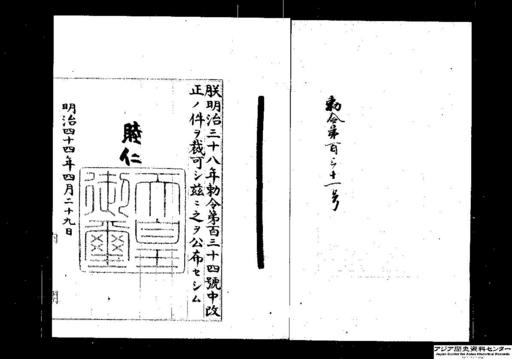 勅令第百三十一号
朕明治三十八年勅令第百三十四號中改
正ノ件ヲ裁可シ茲ニ之ヲ公布セシム
睦仁
天皇
御璽
明治四十四年四月二十九日
内閣
アジア歴史資料センター
Japan Center for Asian Historical Records